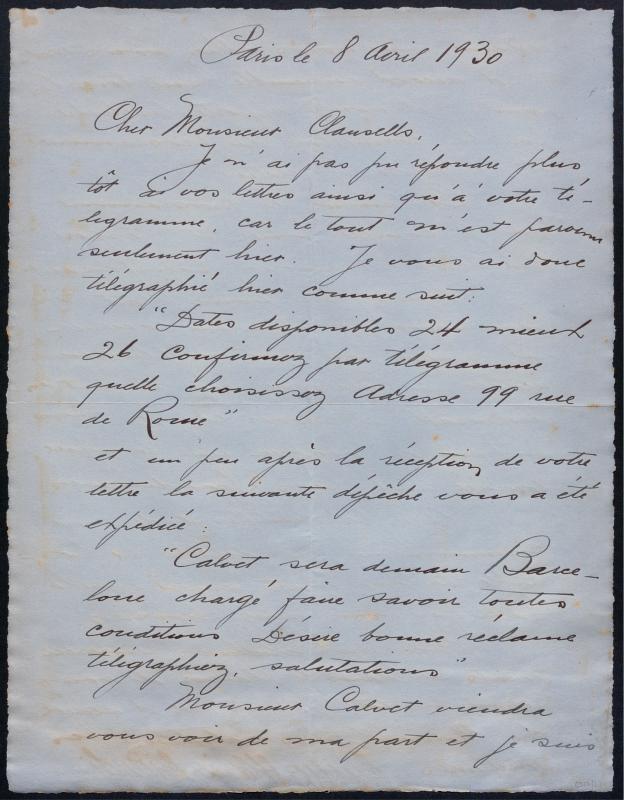 Paris le 8 Avril 1930
Cher Monsieur Clausells,
Je n'ai pas pu répondre plus
tôt à vos lettres ainsi qu'à votre té-
legramme, car le tout m'est parvenu
seulement hier. Je vous ai donc
télégraphié hier comme suit:
"Dates disponibles 24 mieux
26 Confirmez par télégramme
quelle choisissez Adresse 99 rue
de Rome"
et un peu après la réception, de votre
lettre la suivante dépêche vous a été
expédiée:
"Calvet sera demain Barce-
lone chargé faire savoir toutes
conditions Désire bonne réclame
télégraphiez, salutations"
Monsieur Calvet viendra
vous voir de ma part et je suis